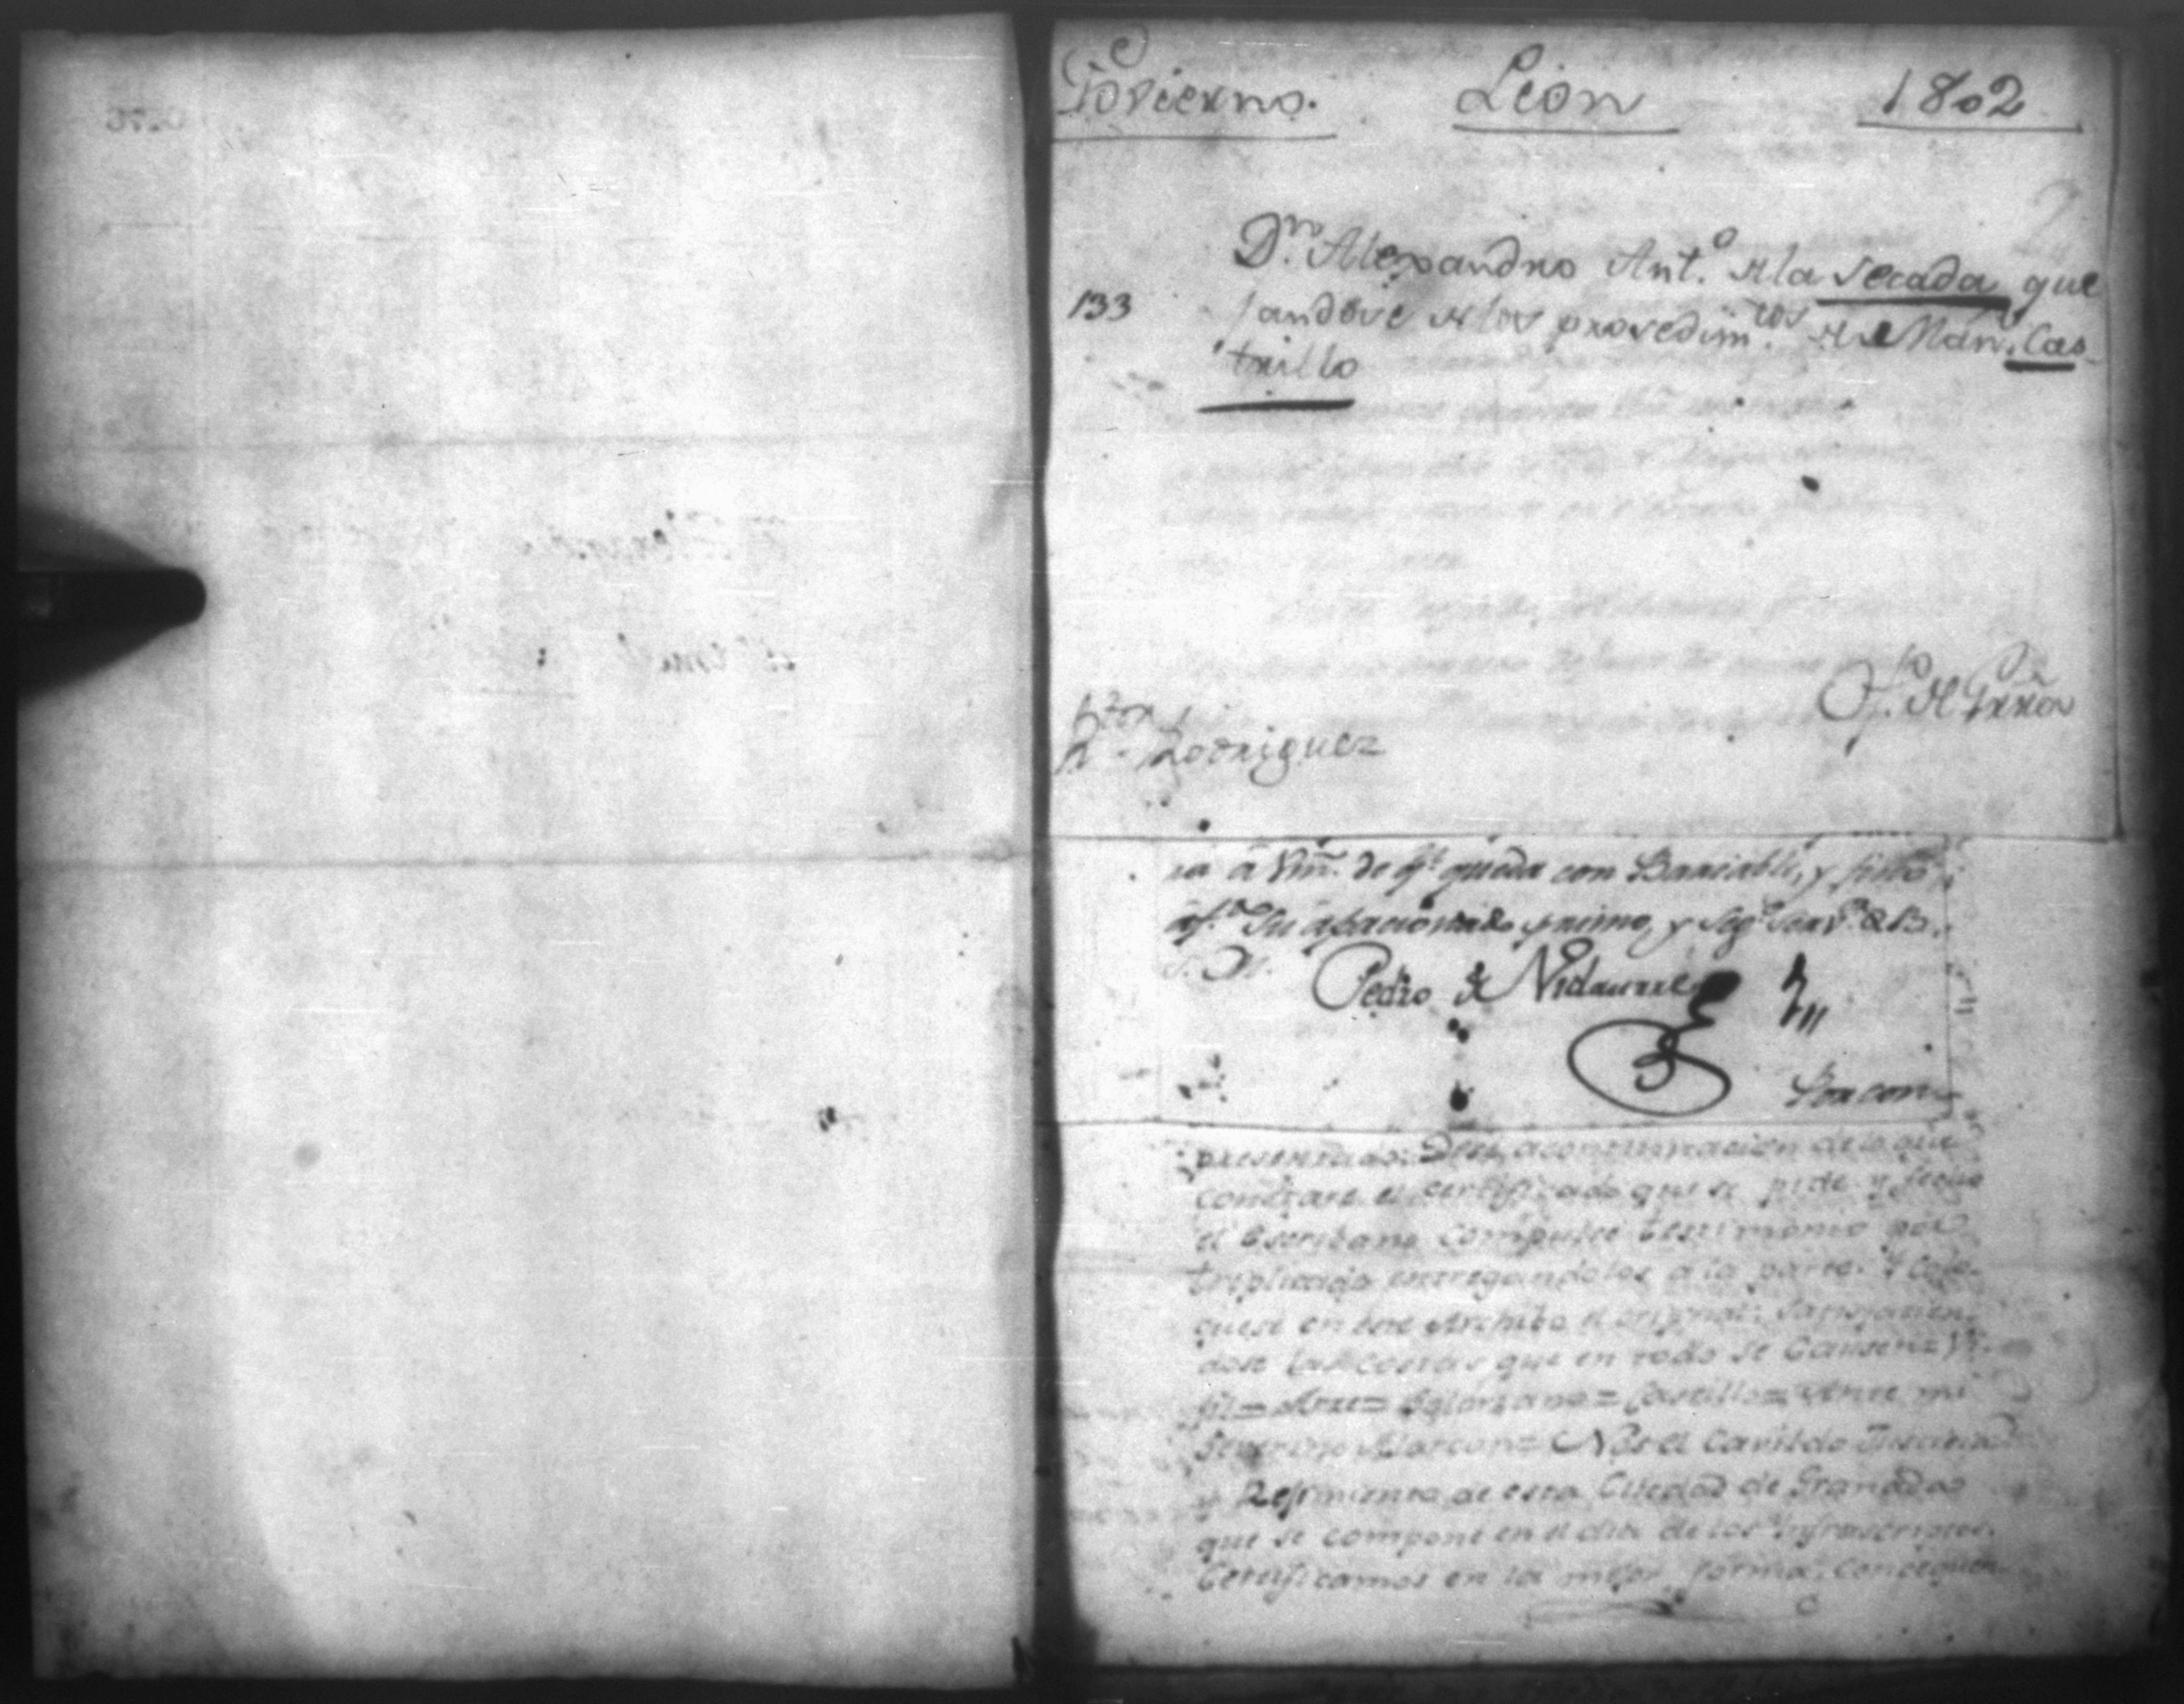 Govierno. León 1802
Dn. Alexandro Ant.o de la Secada que
133 jandose de los prosedim.tos de Man.l Cas
trillo
Of.o de Grra
Rtor Rodriguez
ra a Vm. de q.e queda con Bareable, y
af.mo Su apacionado primo, y Seg.o Serv.r Q. B.
S. M.
Pedro de Vidaurre
Por con
presentado: Dese acontinuacion de lo que
constare el certificado que se pide y fecho
el Escribano Compulse testimonio por
triplicado entregandolos a la parte. Y colo
quese en este Archibo el original: Satisfacien
dose las costas que en todo se Causen=
jil= Arze= Solorzano= Castillo= Ante mi
Severino Alarcon= Nos el Cavildo Justicia
y Rejimiento de esta Ciudad de Granada
que se compone en el dia de los Infrascriptos.
Certificamos en la mejor forma, Conseguen